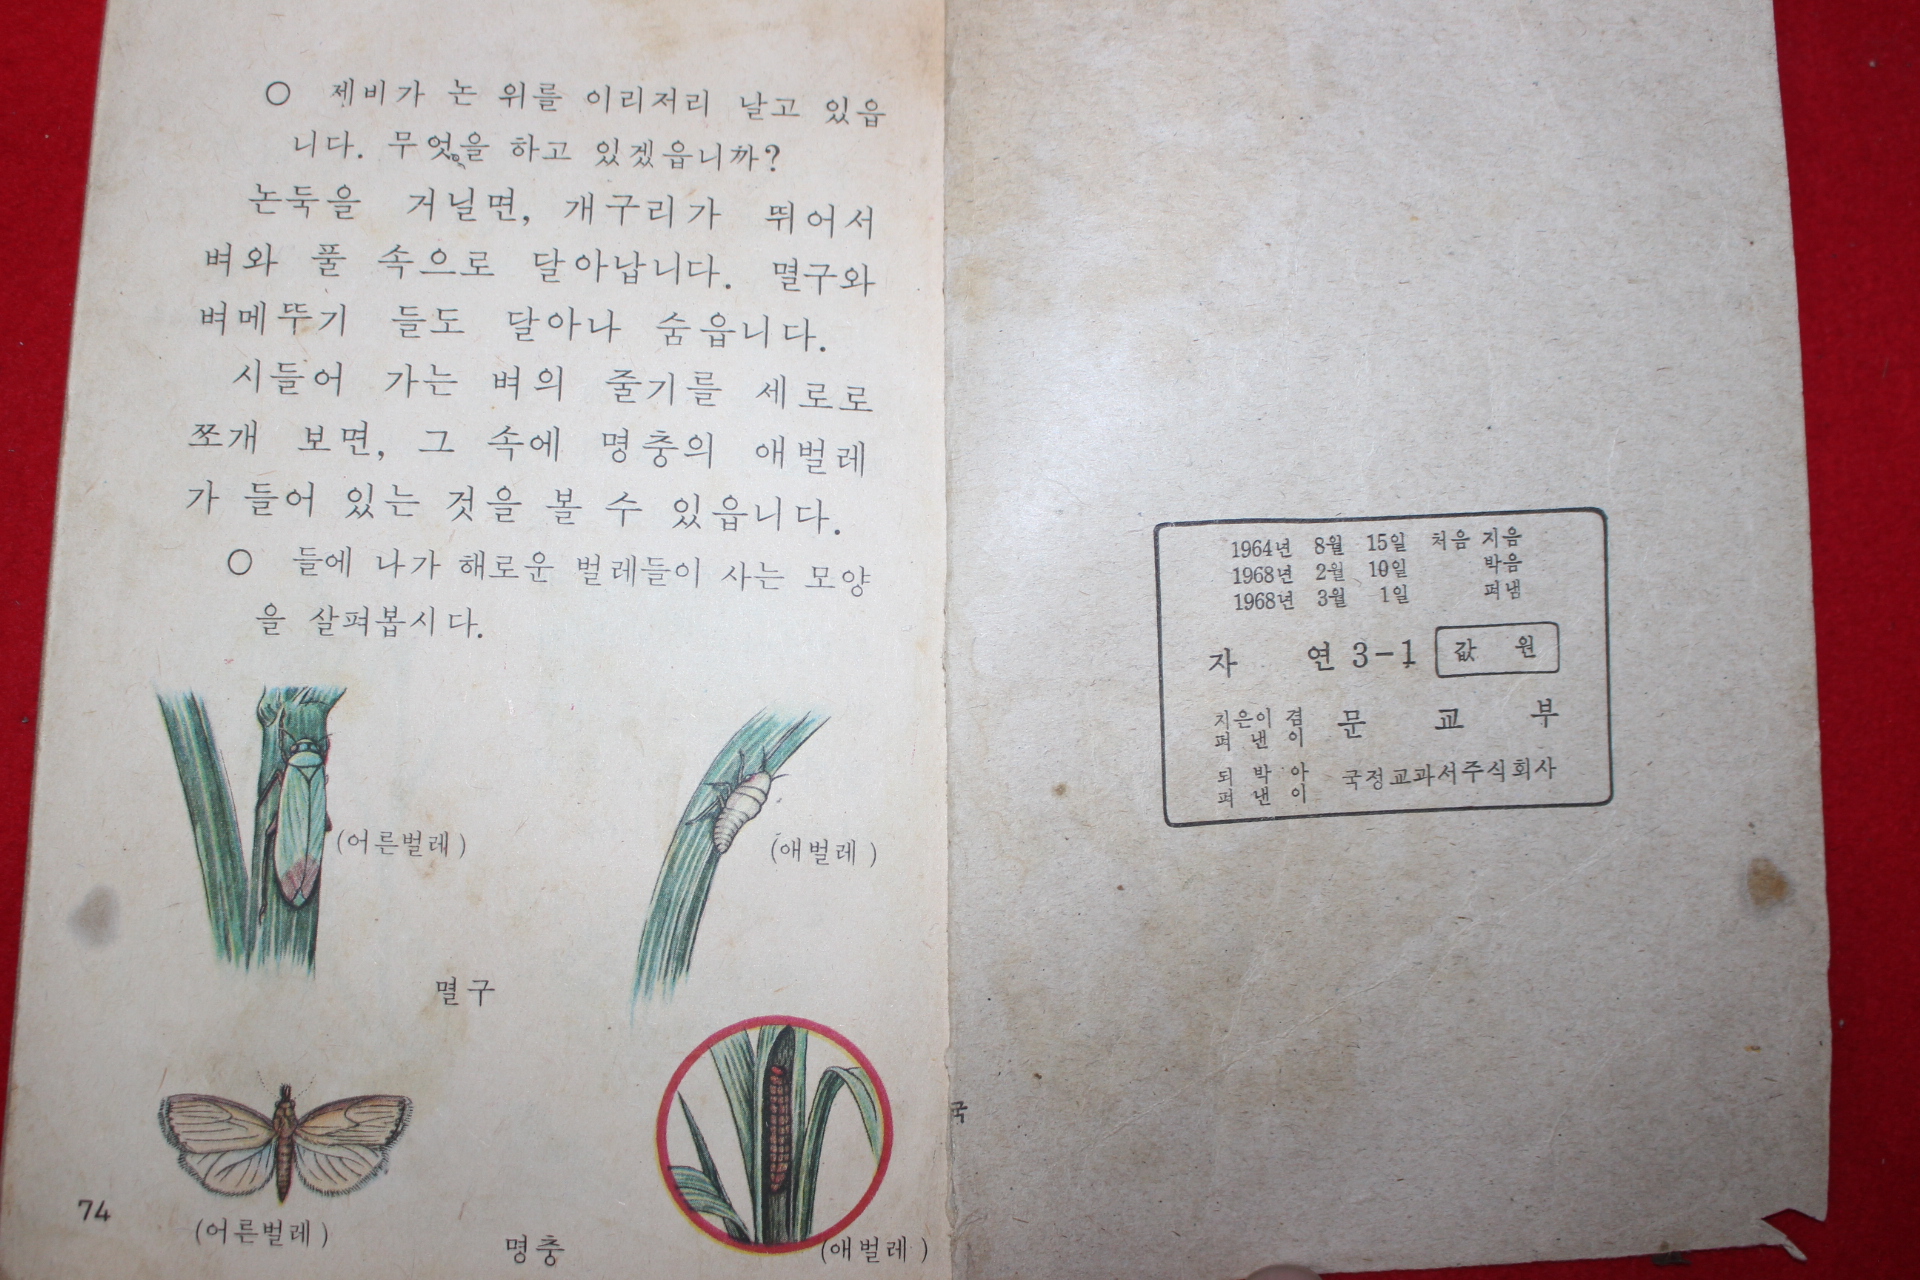 ○ 제비가 논 위를 이리저리 날고 있읍
니다. 무엇을 하고 있겠읍니까?
논둑을 거닐면, 개구리가 뛰어서
벼와 풀 속으로 달아납니다. 멸구와
벼메뚜기 들도 달아나 숨읍니다.
시들어 가는 벼의 줄기를 세로로
쪼개 보면, 그 속에 명충의 애벌레
가 들어 있는 것을 볼 수 있읍니다.
○ 들에 나가 해로운 벌레들이 사는 모양
을 살펴봅시다.
(어른벌레)
(애벌레)
멸구
(어른벌레)
명충
(애벌레)
74
1964년 8월 15일 처음 지음
1968년 2월 10일 박음
1968년 3월 1일 펴냄
자 연 3-1 값 원
지은이 겸
펴 낸 이
문 교 부
되 박 아
펴 낸 이
국정교과서주식회사
국